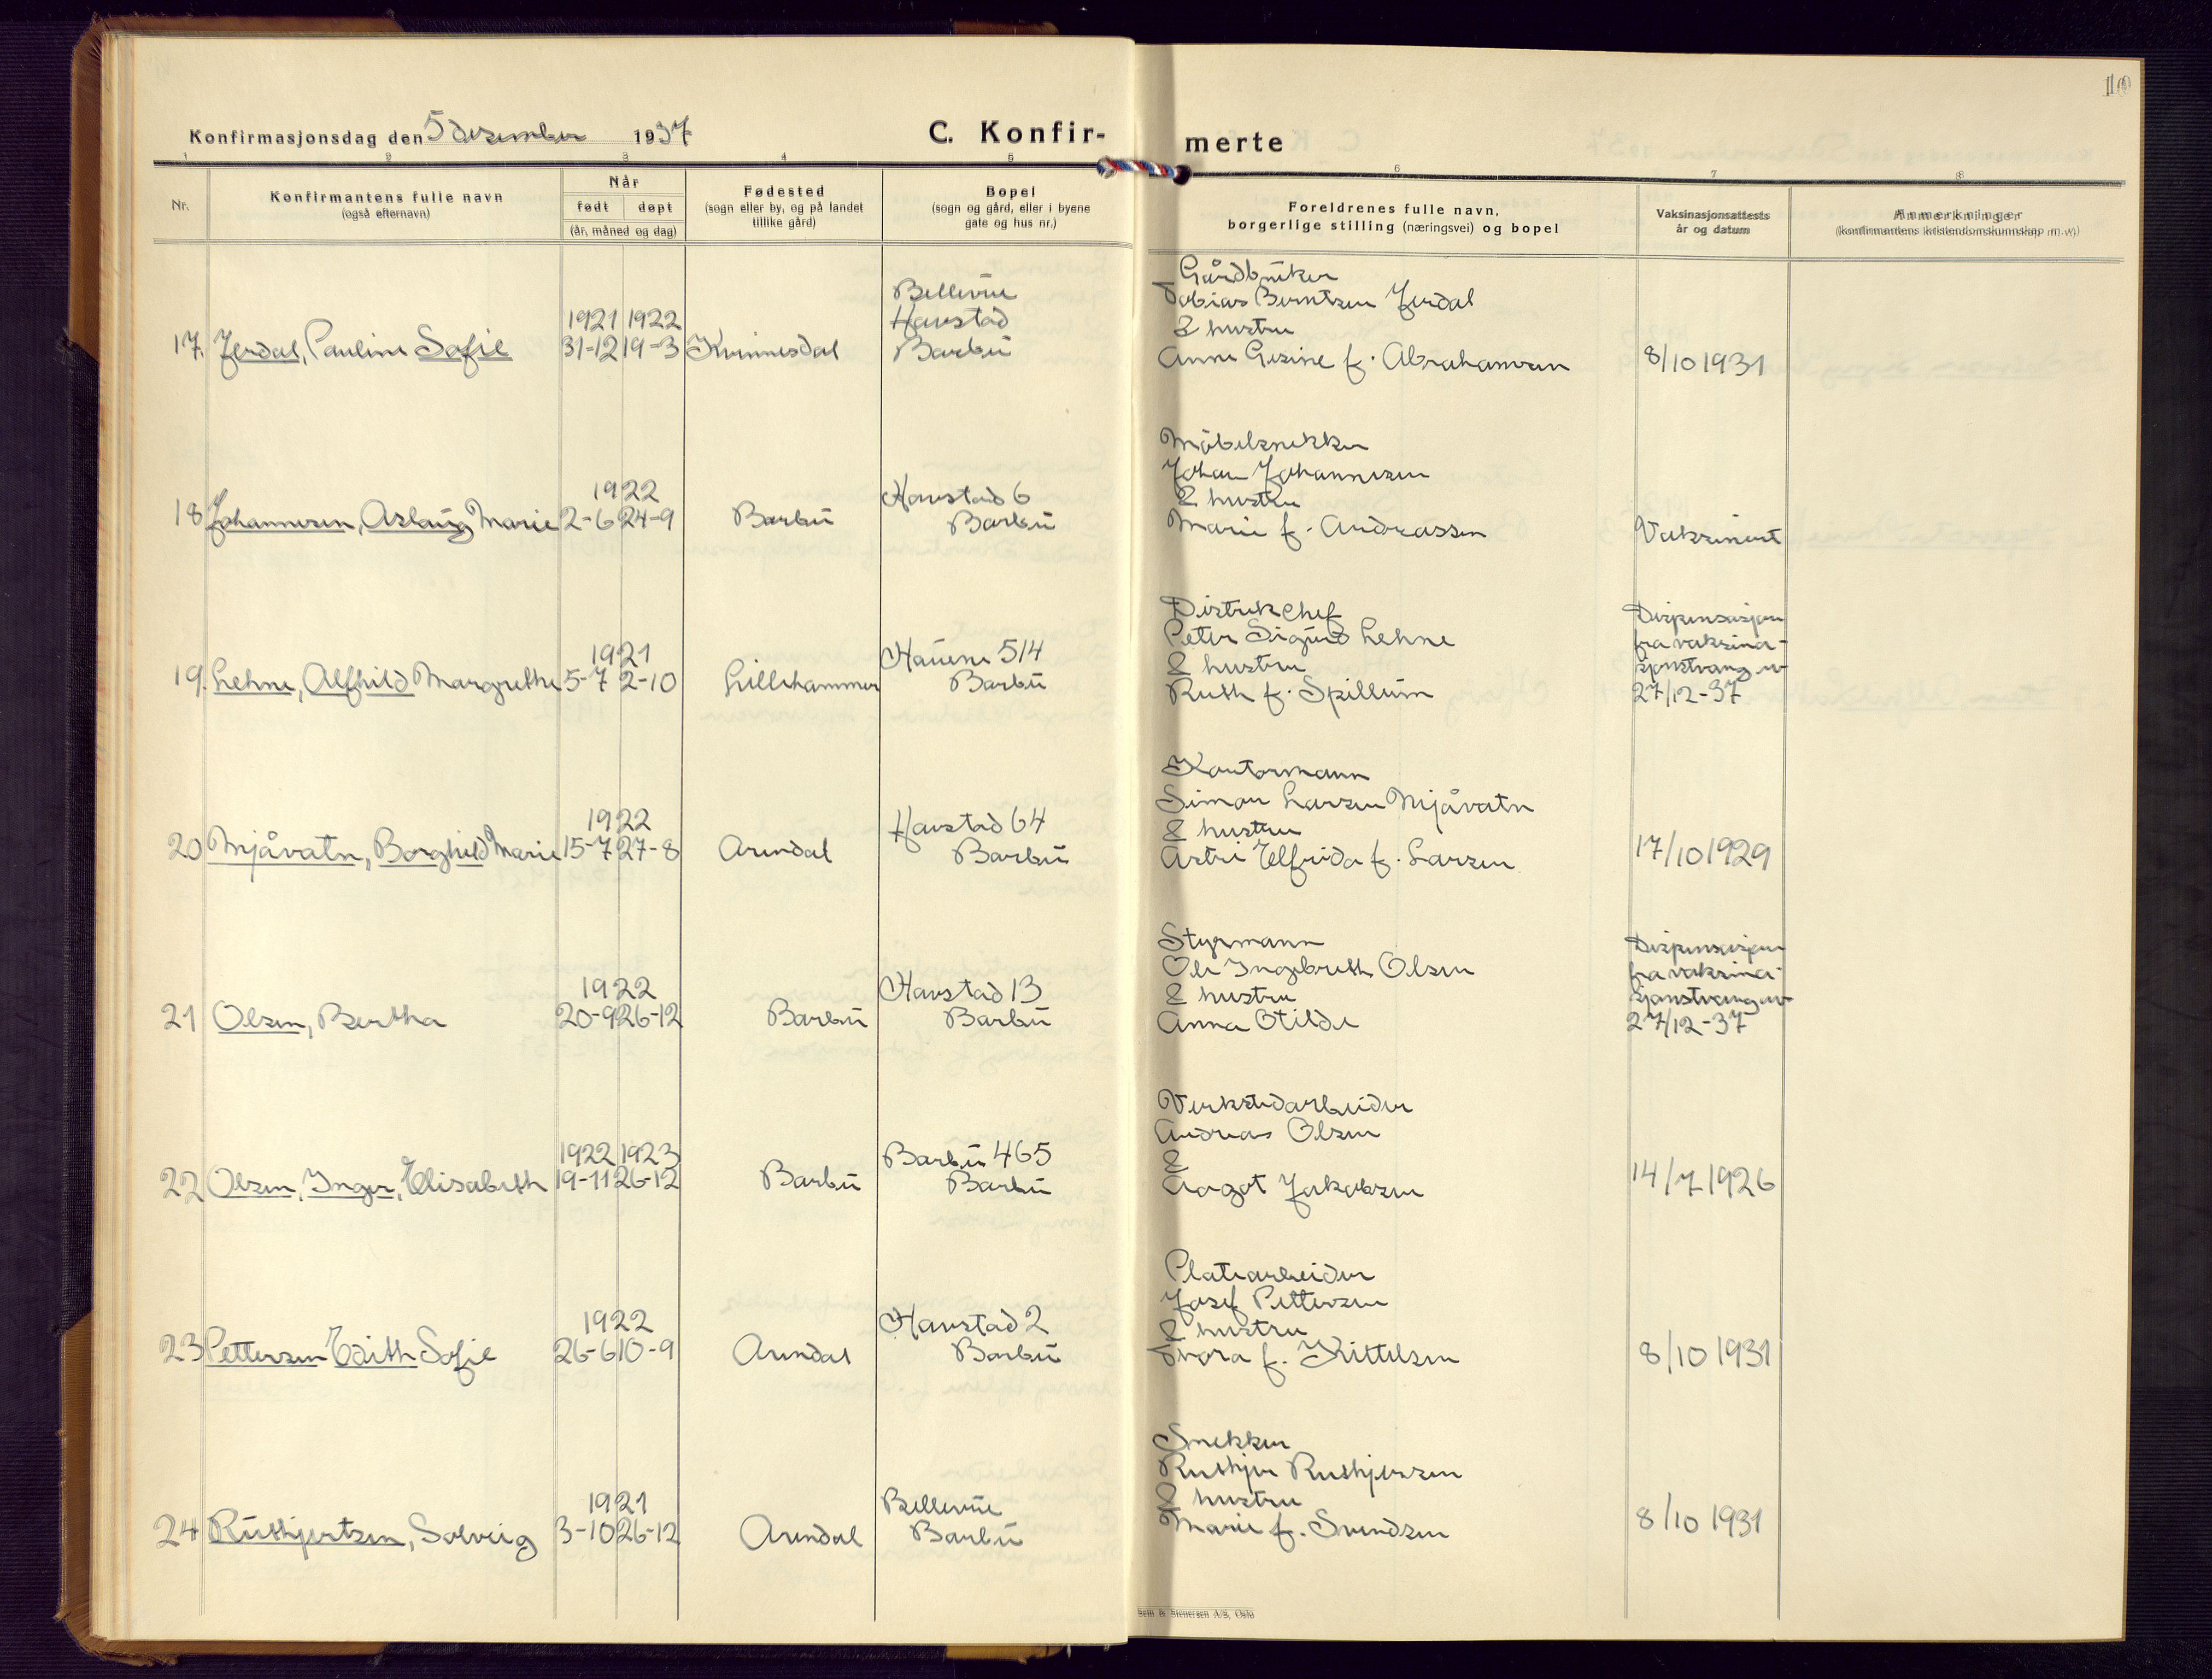 10
Konfirmasjonsdag den 5 desember 1937
C. Konfir-
merte
1 2 3 4 5 6 7 8
Nr.
Konfirmantens fulle navn
(også efternavn)
Når
født døpt
(år, måned og dag)
Fødested
(sogn eller by, og på landet
tillike gård)
Bopel
(sogn og gård, eller i byene
gate og hus nr.)
Foreldrenes fulle navn,
borgerlige stilling (næringsvei) og bopel
Vaksinasjonsattests
år og datum
Anmerkninger
(konfirmantens kristendomskunnskap m. v.)
17. Jerdal, Pauline Sofie
1921 1922
31-12 19-3
Kvinnesdal
Bellevue
Havstad
Barbu
Gårdbruker
Tobias Berntsen Jerdal
& hustru
Anne Gesine f. Abrahamsen
8/10 1931
18 Johannesen, Aslaug Marie
1922
2-6 24-9
Barbu
Havstad 6
Barbu
Møbelsnekker
Johan Johannesen
& hustru
Marie f. Andreassen
Vaksinert
19. Lehne, Alfhild Margrethe
1921
5-7 2-10
Lillehammer
Hauene 514
Barbu
Distrikchef
Peter Sigurd Lehne
& hustru
Ruth f. Spillum
Dispensasjon
fra vaksina-
sjonstvang av
27/12-37
20 Mjåvatn, Borghild Marie
1922
15-7 27-8
Arendal
Havstad 64
Barbu
Kontormann
Simon Larsen Mjåvatn
& hustru
Astri Elfrida f. Larsen
17/10 1929
21 Olsen, Bertha
1922
20-9 26-12
Barbu
Havstad 13
Barbu
Styrmann
Ole Ingebreth Olsen
& hustru
Anna Otilde
Dispensasjon
fra vaksina-
sjonstvang av
27/12-37
22 Olsen, Inger, Elisabeth
1922 1923
19-11 26-12
Barbu
Barbu 465
Barbu
Verkstedarbeider
Andreas Olsen
&
Aagot Jakobsen
14/7 1926
23 Pettersen Edith Sofie
1922
26-6 10-9
Arendal
Havstad 2
Barbu
Platearbeider
Josef Pettersen
& hustru
Thora f. Kittelsen
8/10 1931
24 Rushjertsen, Solveig
1921
3-10 26-12
Arendal
Bellevue
Barbu
Snekker
& hustru
Marie f. Svendsen
8/10 1931
Sem & Stenersen A/S, Oslo